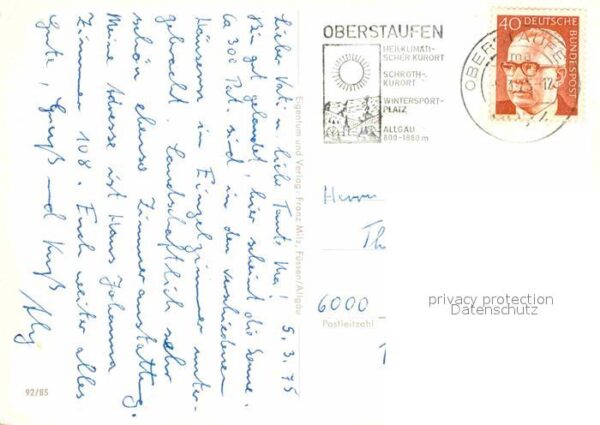 Lieber Vati u. liebe Tante Ria! 5.3.75
Bin gut gelandet, hier scheint die Sonne.
Ca 300 Pat. sind in den verschiedenen
Häusern in Einzelzimmer unter-
gebracht. Landschaftlich sehr
schön ebenso Zimmerausstattung.
Meine Adresse ist Haus Johanna
Zimmer 108. Euch weiter alles
Gute, Gruß und Kuß
92/85
Eigentum und Verlag: Franz Milz, Füssen/Allgäu
OBERSTAUFEN
HEILKLIMATI-
SCHER KURORT
SCHROTH-
KURORT
WINTERSPORT-
PLATZ
ALLGÄU
800-1880 m
OBERSTAUFEN
40 DEUTSCHE
BUNDESPOST
Herrn
Th
6000
Postleitzahl
privacy protection
Datenschutz